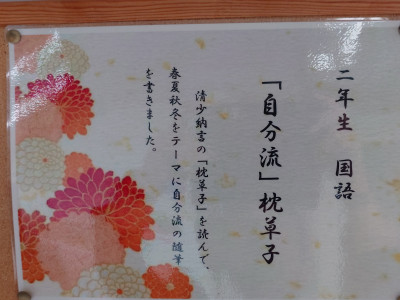 二年生　国語
「自分流」枕草子
清少納言の「枕草子」を読んで、
春夏秋冬をテーマに自分流の随筆
を書きました。